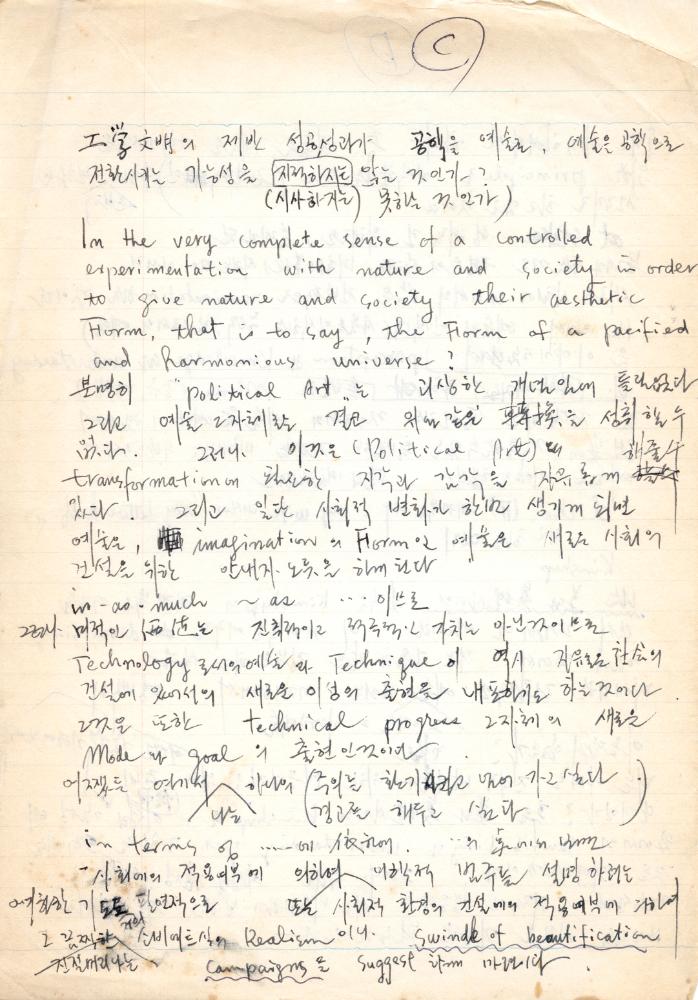 C
工学文明의 제반 성공성과가 공학을 예술로, 예술을 공학으로
전환시키는 가능성을 지적하지는 않는 것인가?
(시사하지는) 못하는 것인가)
In the very complete sense of a controlled
experimentation with nature and society in order
to give nature and society their aesthetic
Form, that is to say, the Form of a pacified
and harmonious universe?
분명히 "political Art"는 괴상한 개념임에 틀림없다
그리고 예술 그자체로는 결코 위와같은 轉換을 성취할 수
없다. 그러나 이것은 (Political Art)
transformation 한 지각과 감각을 자유롭게 해줄수
있다. 그리고 일단 사회적 변화가 한번 생기게 되면
예술은, imagination의 Form인 예술은 새로운 사회의
건설을 위한 안내자 노릇을 하게 된다
in-as-much ~ as ... 이므로
그러나 미적인 는 진취적이고 적극적인 가치는 아닌것이므로
Technology 로서의 예술과 Technique이 역시 자유로운 한 사회
건설에 있어서의 새로운 이성의 출현을 내포하기도 하는것이다.
그것은 또한 technical progress 그자체의 새로운
Mode 와 goal 의 출현인것이다.
어쨌든 여기서 하나의 (주의를 환기시키고 넘어가고싶다)
나는 (경고를 해두고 싶다)
in terms of ......에 依하여. ...의
사회에의 적용여부에 의하여 미학적 범주를 설명하려는
필연적으로 또는 사회적 환경의 건설에의 적용여부에 의하여
그 끔찍한 소비에트식의 Realism이나 swindle of beautification
진절머리나는 campaigns 을 suggest 하게 마련이다.